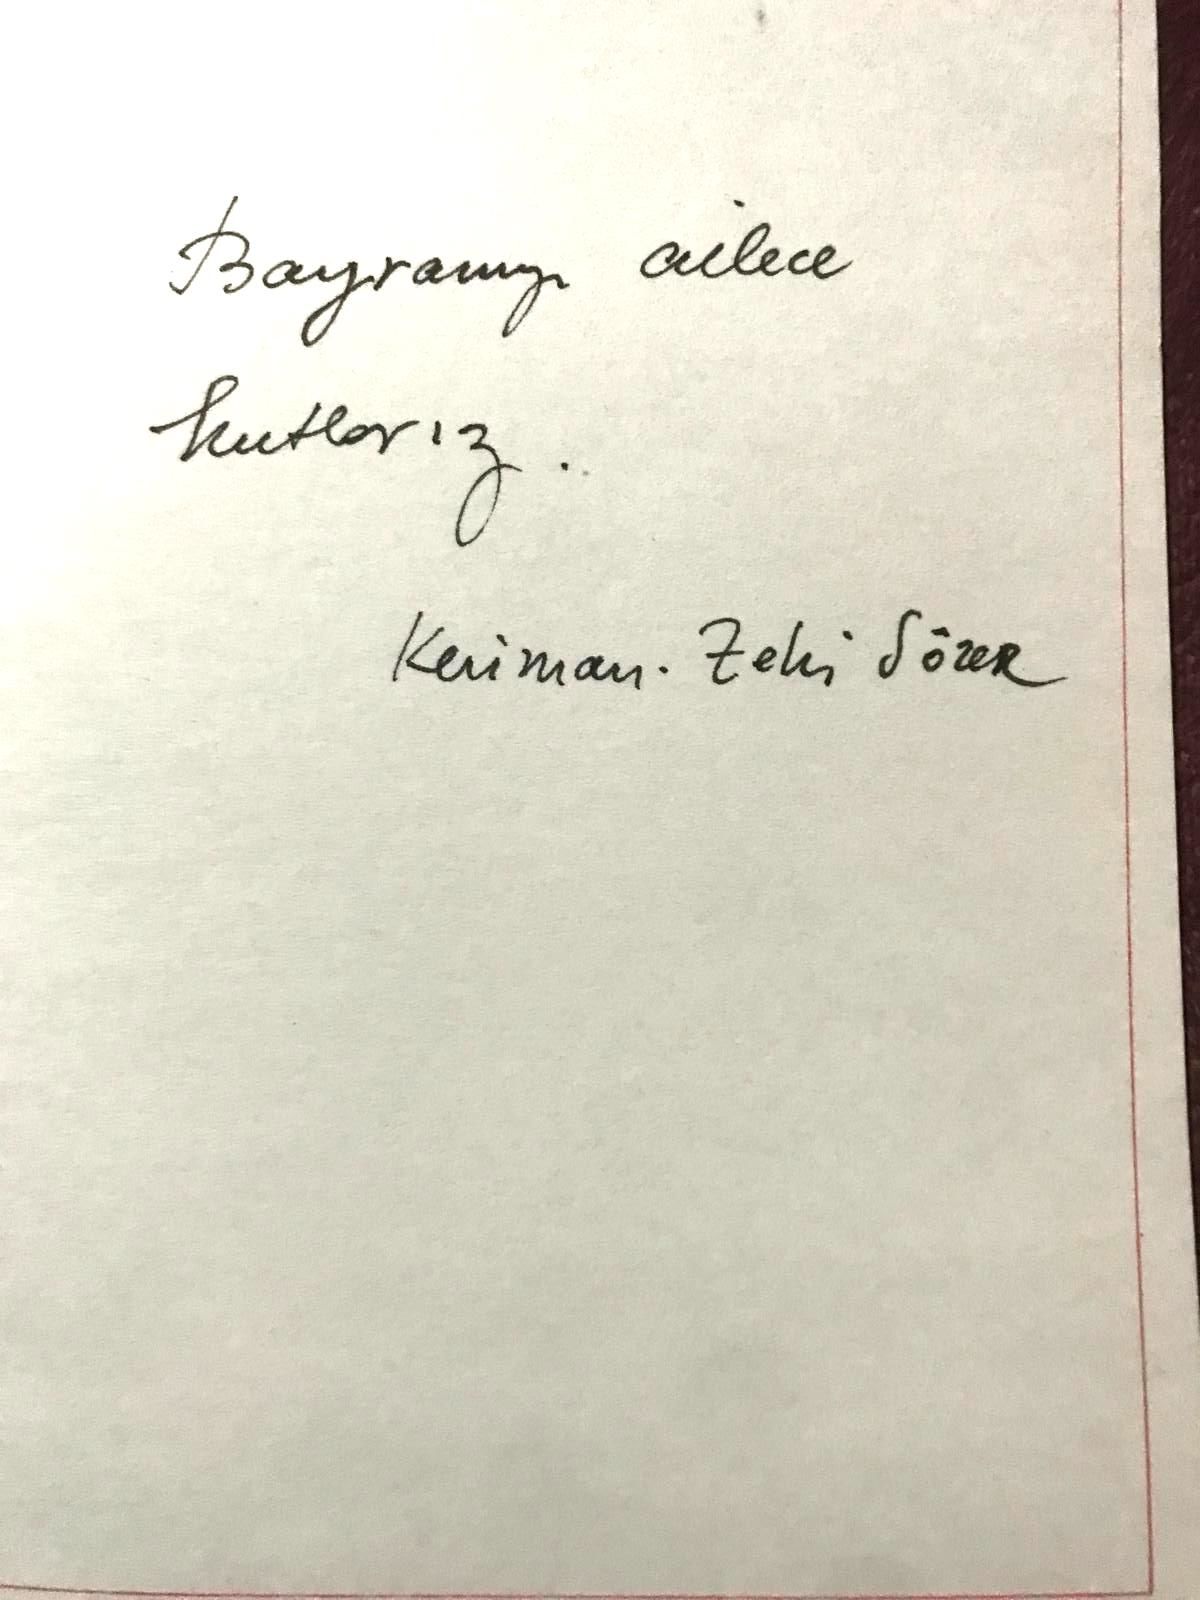 Bayramı ailece
kutlarız.
Keriman. Zeki Sözer